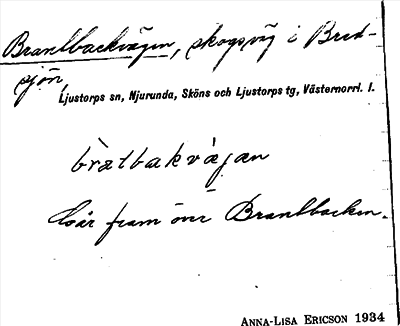 Brantbackvägen, skogsväg i Bred-
sjön,
Ljustorps sn, Njurunda, Sköns och Ljustorps tg, Västernorrl. l.
bratbakvägan
Går fram över Brantbacken.
ANNA-LISA ERICSON 1934